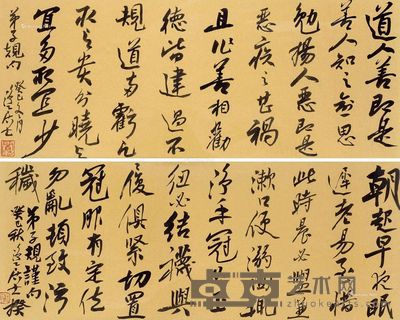 道人善即是
善人知之愈思
勉揚人惡即是
惡疾之甚禍
且作善相勸
德皆建過不
規道兩虧凡
取与贵分曉与
宜多取宜少
弟子規句
癸巳
朝起早夜眠
遲老易至惜
此時晨必盥兼
漱口便溺回輒
淨手冠必正
紐必結襪與
履俱緊切置
冠服有定位
勿亂頓致污
穢
弟子規謹句
癸巳秋
艺术网